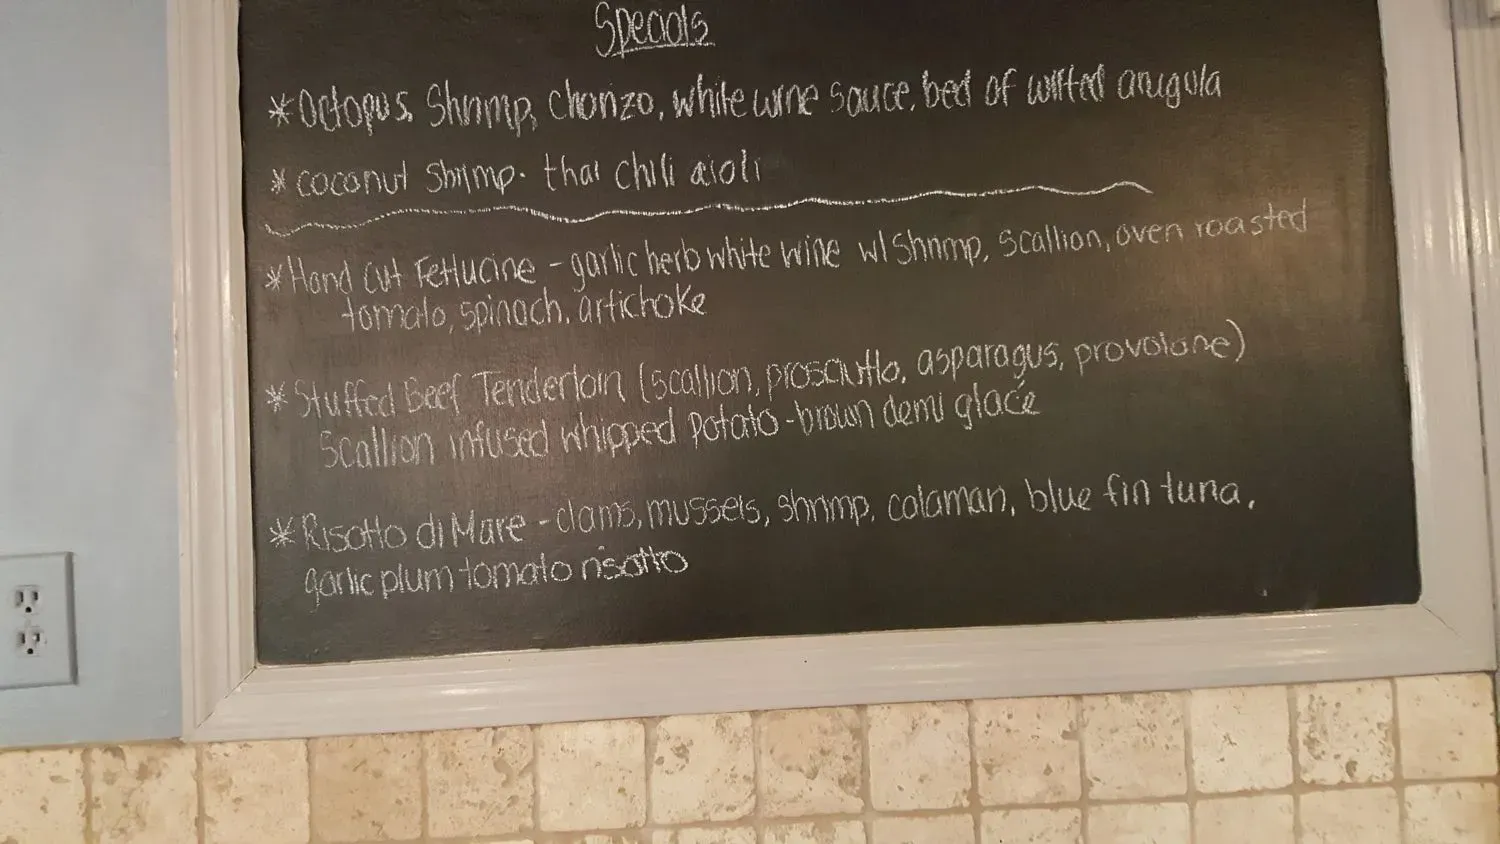 Specials
* Octopus, Shrimp, Chorizo, white wine sauce, bed of wilted arugula
* coconut Shrimp. thai chili aioli
* Hand Cut Fettucine - garlic herb white wine w/ Shrimp, scallion, oven roasted
tomato, spinach, artichoke
* Stuffed Beef Tenderloin (scallion, prosciutto, asparagus, provolone)
Scallion infused whipped potato - brown demi glacé
* Risotto di Mare - clams, mussels, shrimp, calamari, blue fin tuna,
garlic plum tomato risotto